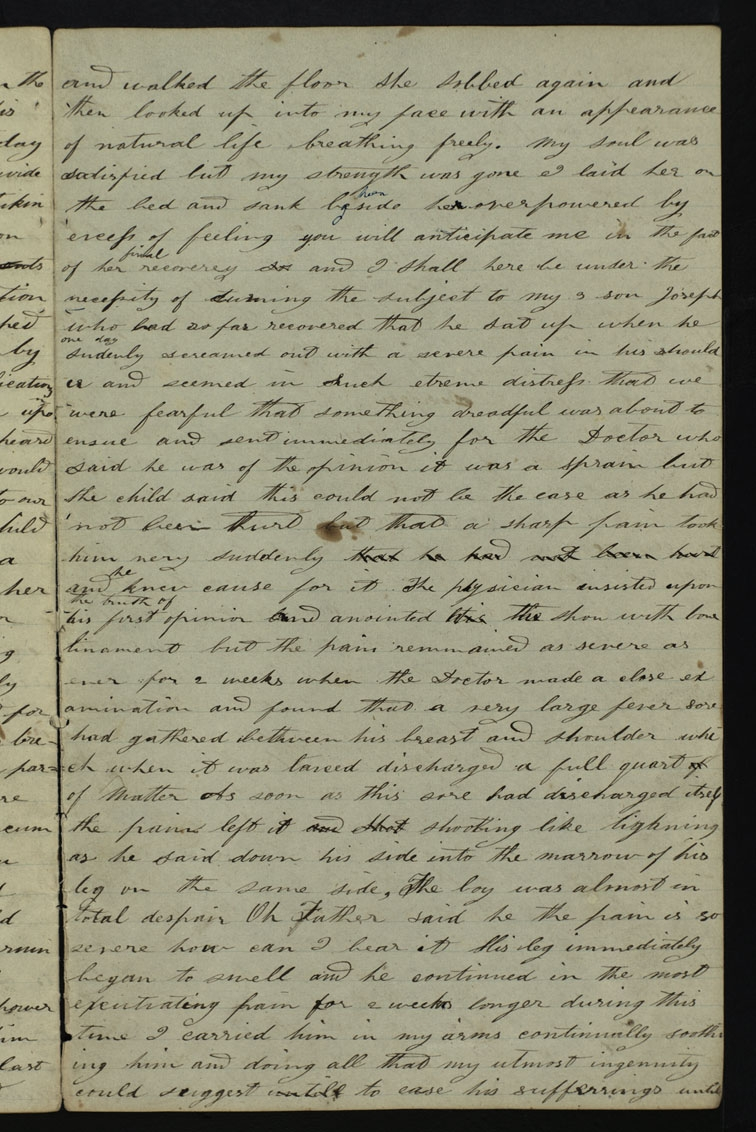 and walked the floor she sobbed again and
then looked up into my face with an appearance
of natural life breathing freely. my soul was
satisfied but my strength was gone I laid her on
the bed and sank beside her overpowered by
excess of feeling you will anticipate me in the fact
of her final recoverey and I shall here be under the
necessity of turning the subject to my 3 son Joseph
who had so far recovered that he sat up when he
one day
sudenly screamed out with a severe pain in his should
er and seemed in such etreme distress that we
were fearful that something dreadful was about to
ensue and sent immediately for the Doctor who
said he was of the opinion it was a sprain but
the child said this could not be the case as he had
not been hurt but that a sharp pain took
him very suddenly that he had not been hurt
and he knew cause for it The physician insisted upon
the truth of
his first opinion and anointed his the shou with bone
linament but the pain remmained as severe as
ever for 2 weeks when the Doctor made a close ex
amination and found that a very large fever sore
had gathered between his breast and shoulder whi
ch when it was lanced discharged a full quart
of matter As soon as this sore had discharged itself
the pain left it and shot shooting like lightning
as he said down his side into the marrow of his
leg on the same side, The boy was almost in
total despair Oh Father said he the pain is so
severe how can I bear it His leg immediately
began to swell and he continued in the most
excrutiating pain for 2 weeks longer during this
time I carried him in my arms continually sooth
ing him and doing all that my utmost ingenuity
could suggest untill to ease his sufferrings until